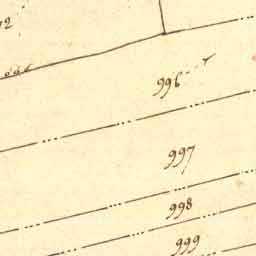 996
997
998
999